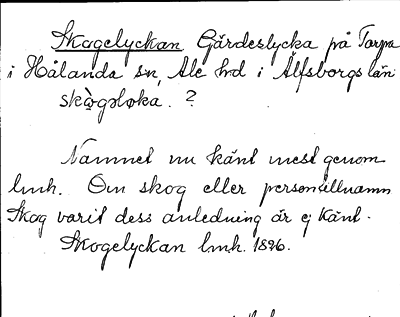 Skogelyckan Gärdeslycka på Torpa
i Hålanda sn, Ale hd i Älfsborgs län
skògəløka. ?
Namnet nu känt mest genom
lmh. Om skog eller persontillnamn
Skog varit dess anledning är ej känt.
Skogelyckan lmh. 1896.